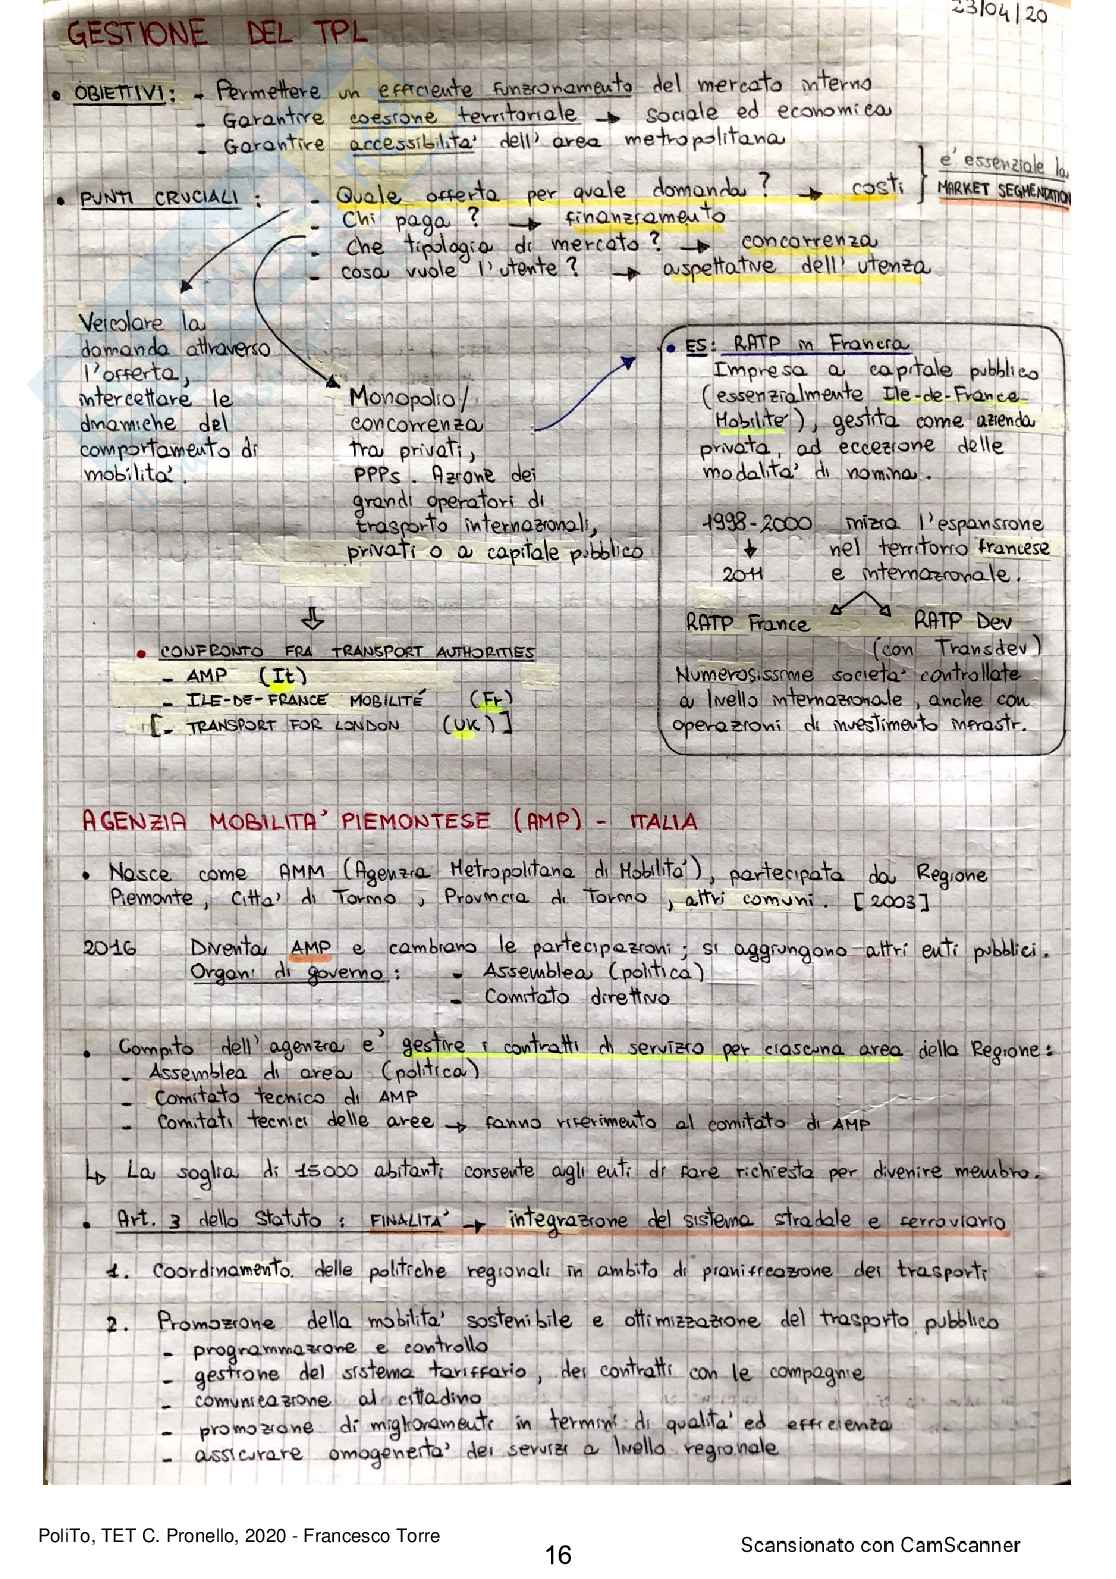 23/04/20
GESTIONE DEL TPL
• OBIETTIVI: - Permettere un efficiente funzionamento del mercato interno
- Garantire coesione territoriale → sociale ed economica
- Garantire accessibilita' dell'area metropolitana
• PUNTI CRUCIALI: - Quale offerta per quale domanda? → costi
- Chi paga? → finanziamento
- Che tipologia di mercato? → concorrenza
- cosa vuole l'utente? → aspettative dell'utenza
e' essenziale la
MARKET SEGMENTATION
Veicolare la
domanda attraverso
l'offerta,
intercettare le
dinamiche del
comportamento di
mobilita'.
Monopolio/
concorrenza
tra privati,
PPPs. Azione dei
grandi operatori di
trasporto internazionali,
privati o a capitale pubblico
• ES: RATP in Francia
Impresa a capitale pubblico
(essenzialmente Ile-de-France
Mobilité), gestita come azienda
privata, ad eccezione delle
modalita' di nomina.
1998-2000 inizia l'espansione
↓ nel territorio francese
2011 e internazionale.
RATP France RATP Dev
(con Transdev)
Numerosissime societa' controllate
a livello internazionale, anche con
operazioni di investimento infrastr.
⇓
• CONFRONTO FRA TRANSPORT AUTHORITIES
- AMP (It)
- ILE-DE-FRANCE MOBILITÉ (Fr)
[- TRANSPORT FOR LONDON (UK)]
AGENZIA MOBILITA' PIEMONTESE (AMP) - ITALIA
• Nasce come AMM (Agenzia Metropolitana di Mobilita'), partecipata da Regione
Piemonte, Citta' di Torino, Provincia di Torino, altri comuni. [2003]
2016 Diventa AMP e cambiano le partecipazioni; si aggiungono altri enti pubblici.
Organi di governo: - Assemblea (politica)
- Comitato direttivo
• Compito dell'agenzia e' gestire i contratti di servizio per ciascuna area della Regione:
- Assemblea di area (politica)
- Comitato tecnico di AMP
- Comitati tecnici delle aree → fanno riferimento al comitato di AMP
↳ La soglia di 15000 abitanti consente agli enti di fare richiesta per divenire membro.
• Art. 3 dello Statuto: FINALITA' → integrazione del sistema stradale e ferroviario
1. Coordinamento delle politiche regionali in ambito di pianificazione dei trasporti
2. Promozione della mobilita' sostenibile e ottimizzazione del trasporto pubblico
- programmazione e controllo
- gestione del sistema tariffario, dei contratti con le compagnie
- comunicazione al cittadino
- promozione di miglioramenti in termini di qualita' ed efficienza
- assicurare omogeneita' dei servizi a livello regionale
PoliTo, TET C. Pronello, 2020 - Francesco Torre
16
Scansionato con CamScanner